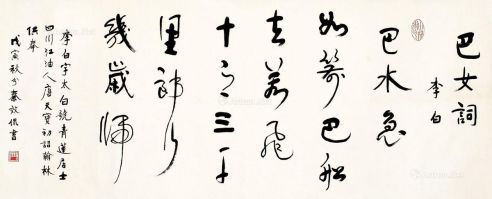 巴女詞
李白
巴水急
如箭巴船
去若飛
十月三千
里郎行
幾歲歸
李白字太白號青蓮居士
四川江油人唐天寶初詔翰林
供奉
戊寅秋分秦效侃書